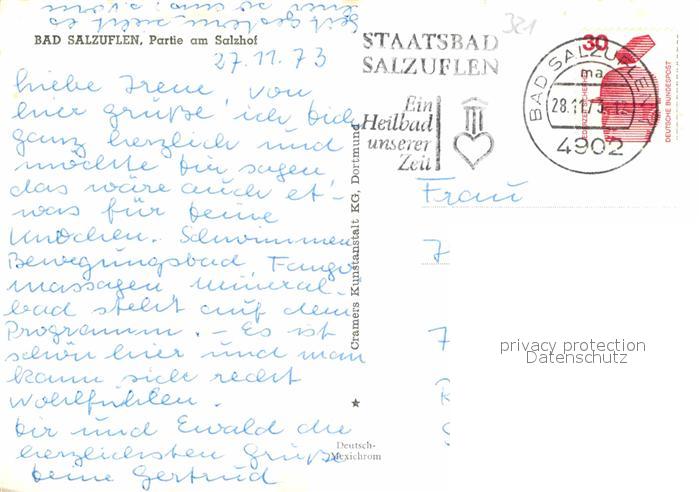 BAD SALZUFLEN, Partie am Salzhof
27.11.73
Liebe Irene von
hier grüße ich dich
ganz herzlich und
möchte dir sagen
das wäre auch et-
was für deine
Knochen. Schwimmen
Bewegungsbad, Fango
massagen Mineral-
bad steht auf dem
Programm. – Es ist
schön hier und man
kann sich recht
wohlfühlen.
Dir und Ewald die
herzlichsten Grüße
deine Gertrud
Cramers Kunstanstalt KG, Dortmund
Deutsch-
Mexichrom
STAATSBAD
SALZUFLEN
Ein
Heilbad
unserer
Zeit
321
BAD SALZUFLEN
ma
28.11.73-12
4902
30
DEUTSCHE BUNDESPOST
Frau
privacy protection
Datenschutz